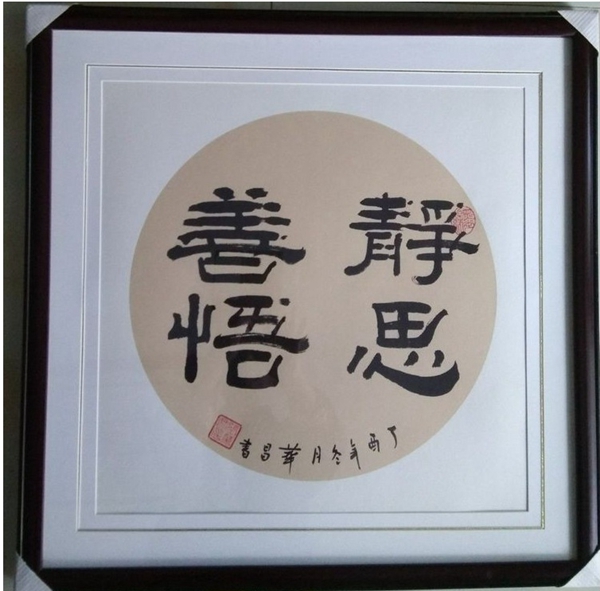 靜思
善悟
丁酉年冬月華昌書